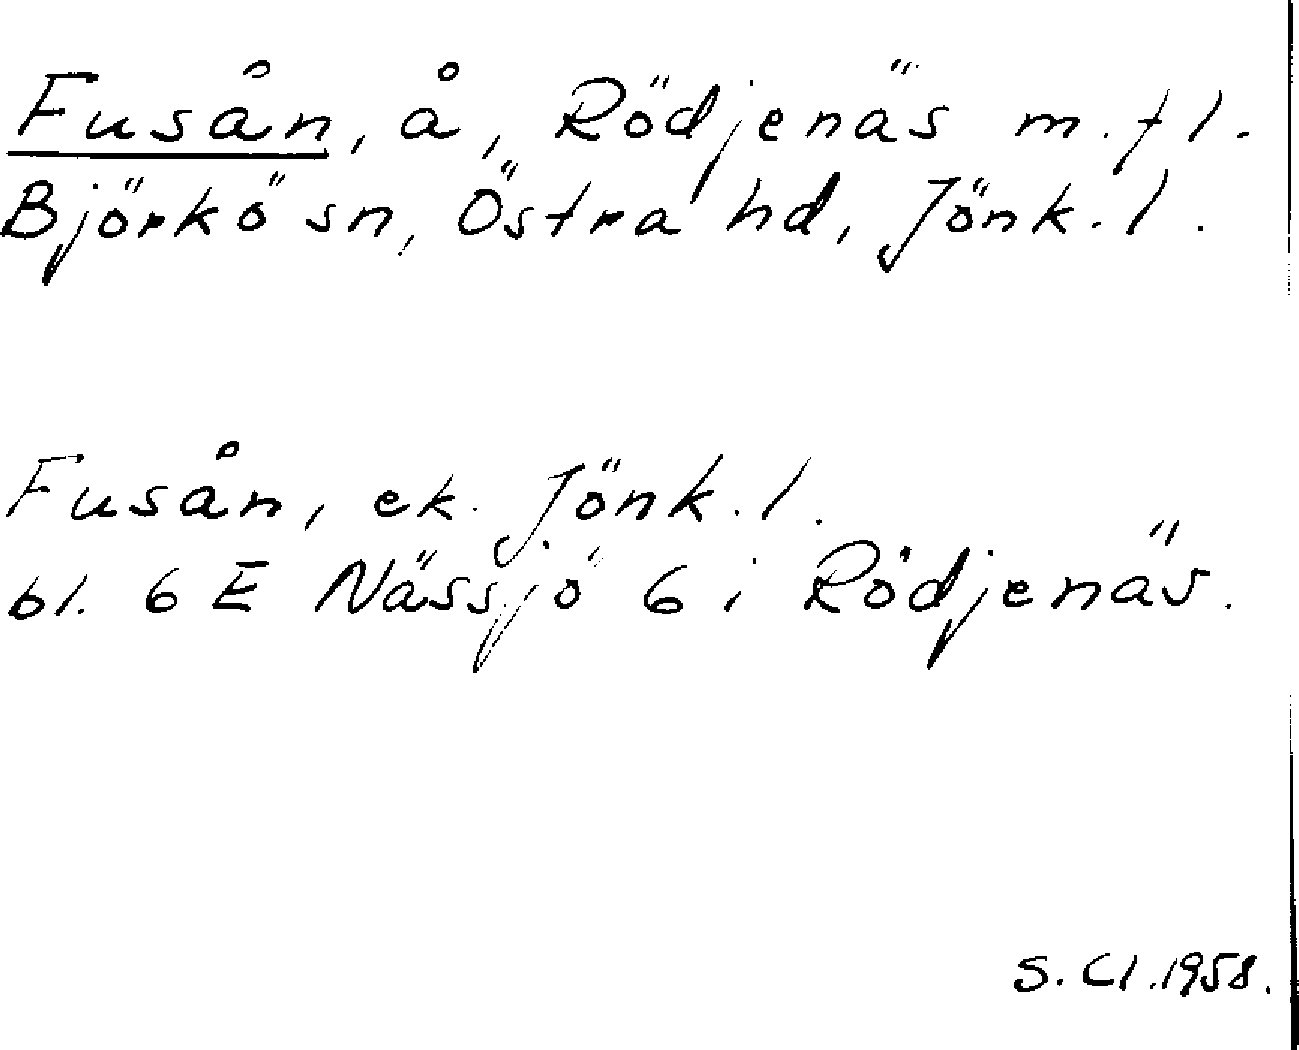 Fusån, å, Rödjenäs m.fl.
Björkö sn, Östra hd, Jönk. l.
Fusån, ek. Jönk. l.
bl. 6 E Nässjö 6 i Rödjenäs.
S. Cl. 1958.